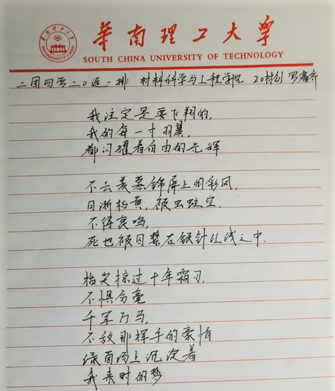 華南理工大學
SOUTH CHINA UNIVERSITY OF TECHNOLOGY
二团四营二〇连一排 材料科学与工程学院
我注定是要飞翔的,
我的每一个羽翼,
都闪耀着自由的光辉
不去羡慕锦屏上的彩凤,
日渐枯黄,被虫蚀空
不得哀鸣,
死也被囚禁在银针丝线之中.
指尖掠过十年霜刃,
不损分毫
千军万马,
不敌那挥手的豪情
绿茵场上沉淀着
我来时的梦